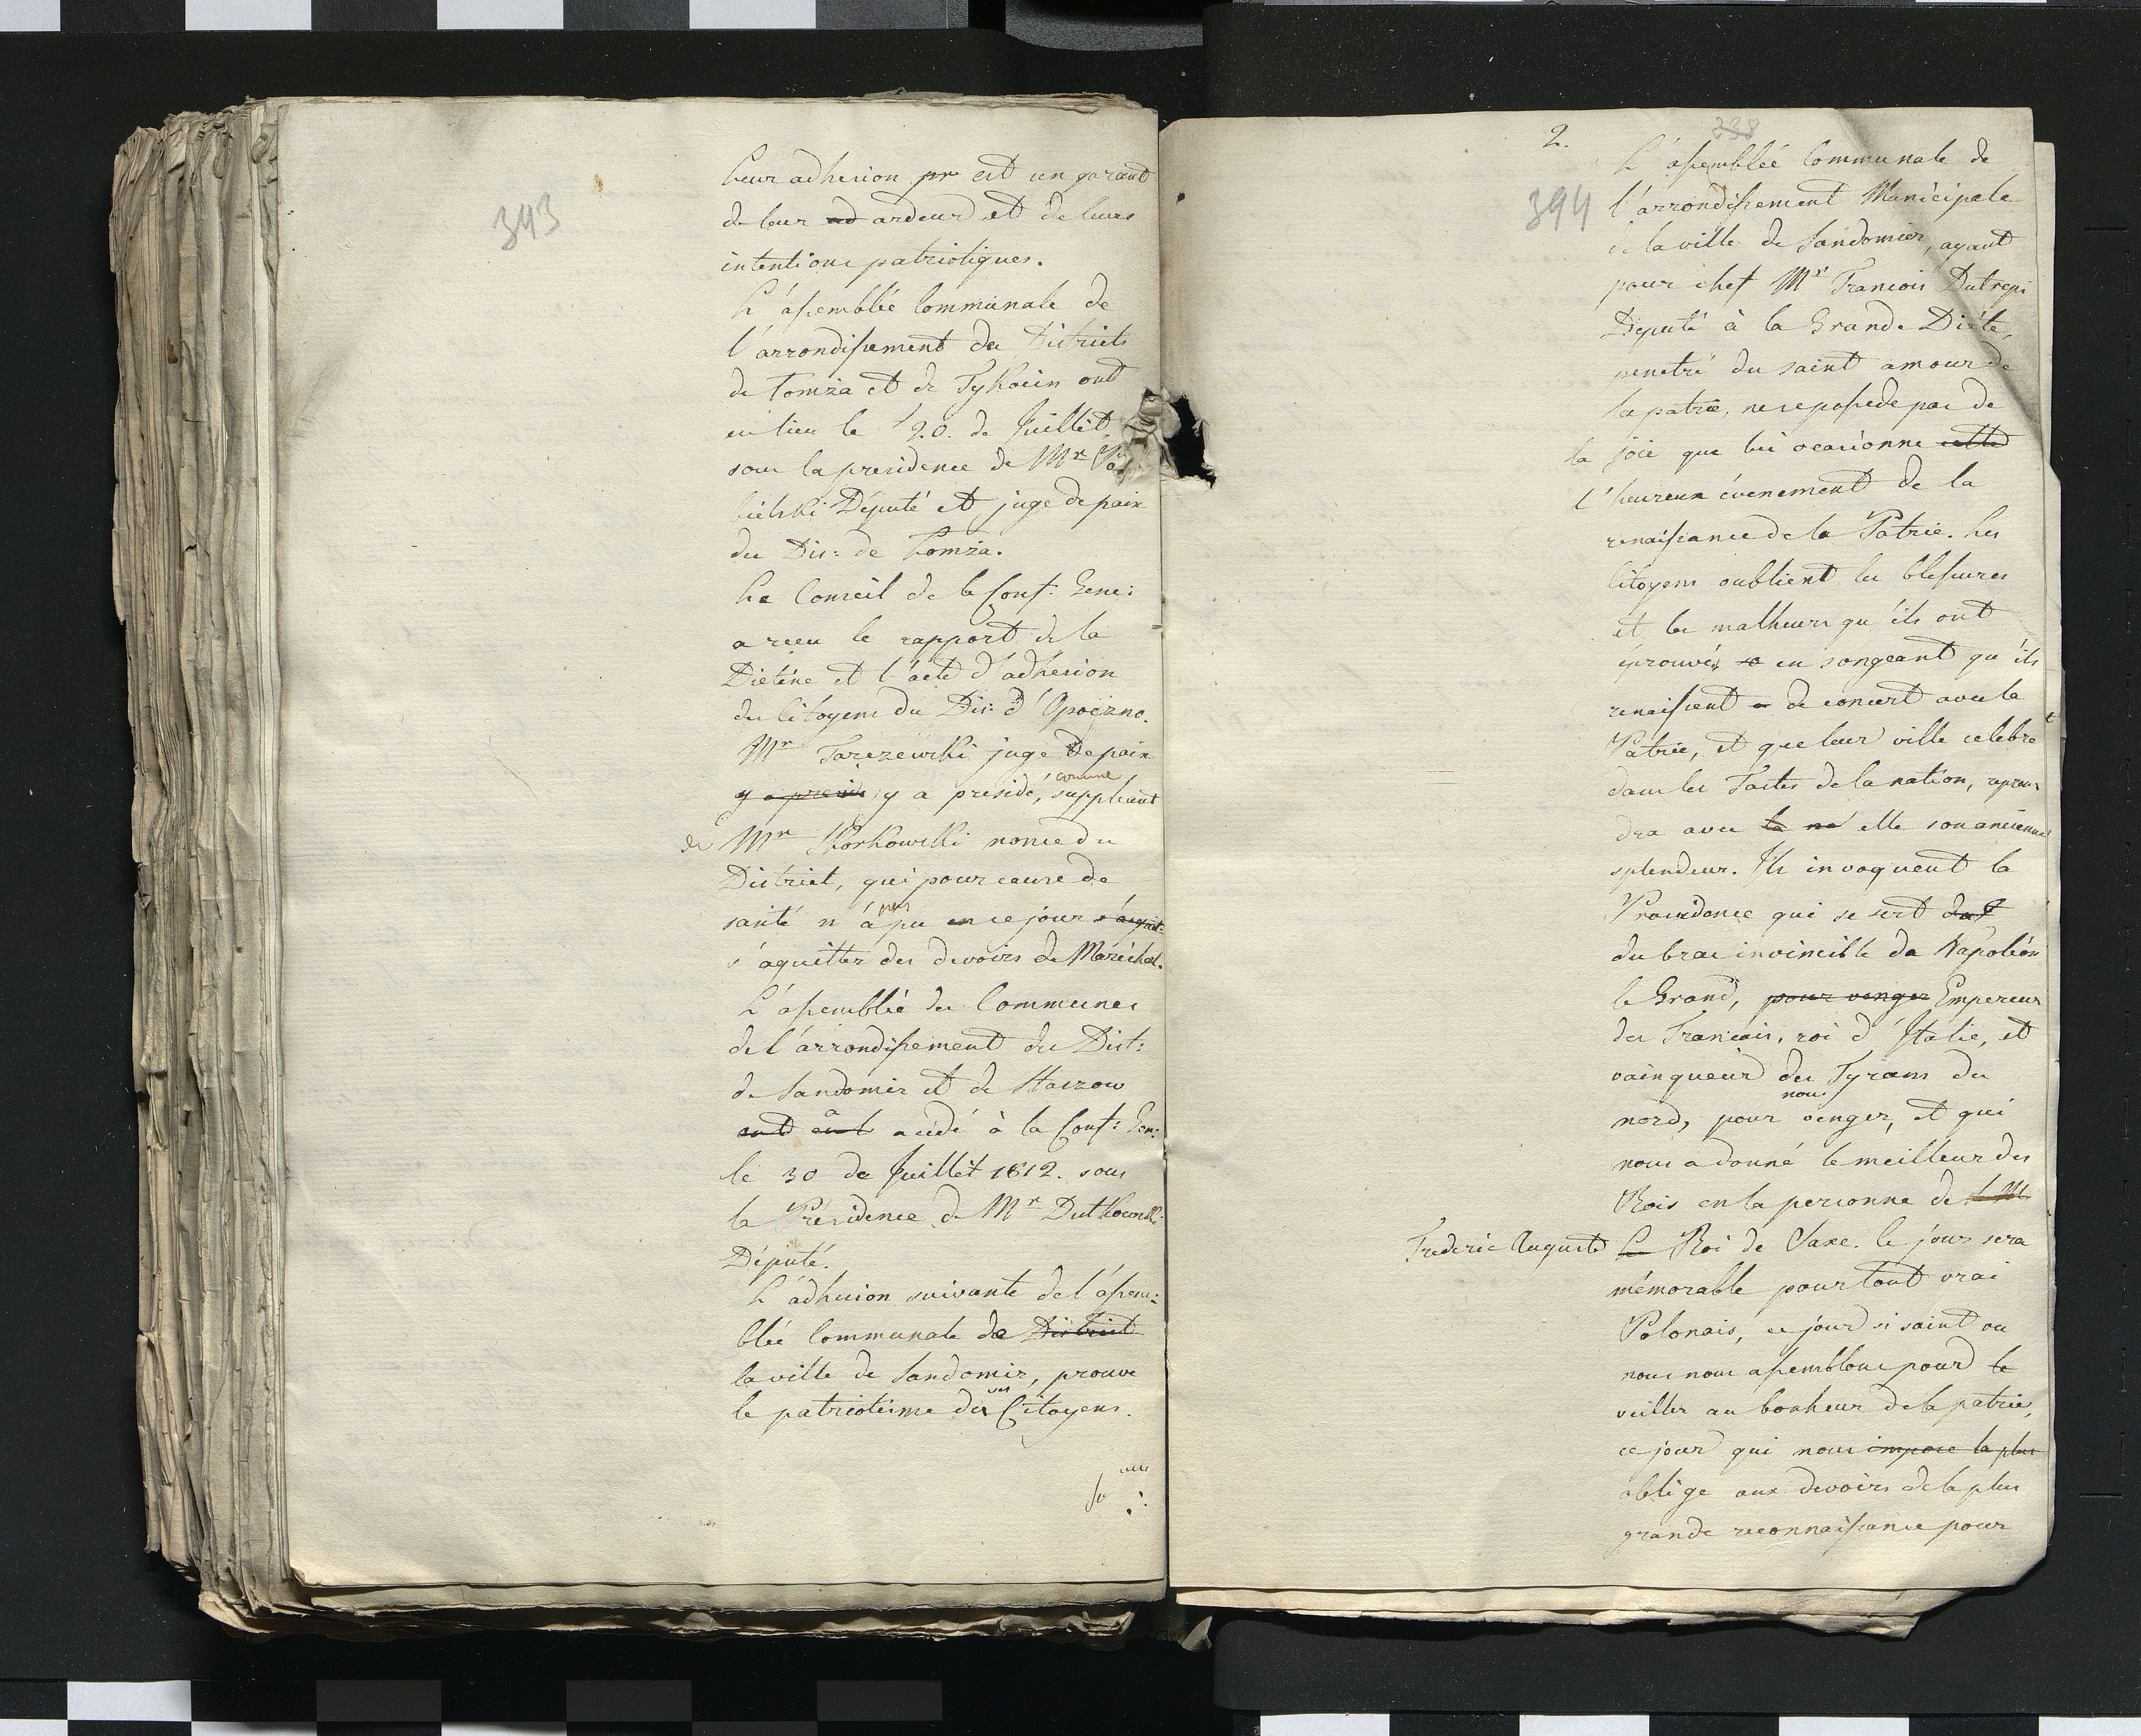 393
Leur adhesion pr est un garant
de leur ad ardeur et de leurs
intentions patriotiques.
L'assemblée Communale de
l'arrondissement des Districts
de Łomża et de Tykocin ont
eu lieu le 20. de Juillet
sous la presidence de Mr
bielski Député et juge de paix
du Dis: de Łomża.
Le Conseil de la Conf: Gene:
a reçu le rapport de la
Diétine et l'acte d'adhesion
des Citoyens du Dis: d'Opoczno.
Mr Tarczewski juge de paix
y a presid y a présidé, comme suppleant
de Mr Skorkowski nonce du
District, qui pour cause de
santé n'a pas pu en ce jour s'acquit:
s'aquitter des devoirs de Maréchal.
L'assemblée des Communes
de l'arrondissement des Dist:
de Sandomir et de Staszow
ont a accédé à la Conf: Gen:
le 30 de Juillet 1812. sous
la Présidence de Mr Dutkowski
Député.
L'adhesion suivante de l'assem:
blée Communale de District
la ville de Sandomir, prouve
le patriotisme des ses Citoyens.
2.
238
394
L'assemblée Communale de
l'arrondissement Municipale
de la ville de Sandomir, ayant
pour chef Mr Francois Dutrepi
Député à la Grande Diéte,
penetré du saint amour de
la patrie, ne se possede pas de
la joie que lui ocasionne cette
l'heureux évenement de la
renaissance de la Patrie. Les
Citoyens oublient les blessures
et les malheurs qu'ils ont
éprouvés en songeant qu'ils
renaissent de concert avec la
Patrie, et que leur ville celebre
dans les Fastes de la nation, repren
dra avec la na elle son ancienne
splendeur. Ils invoquent la
Providence qui se sert du
du bras invincible de Napoléon
le Grand, pour venger Empereur
des Francais, roi d'Italie, et
vainqueur des Tyrans du
nord, pour nous venger, et qui
nous a donné le meilleur des
Rois en la personne de S. M.
Frederic Auguste Le Roi de Saxe. Ce jour sera
mémorable pour tout vrai
Polonais, ce jour si saint ou
nous nous assemblons pour le
veiller au bonheur de la patrie,
ce jour qui nous impose la plus
oblige aux devoirs de la plus
grande reconnaissance pour